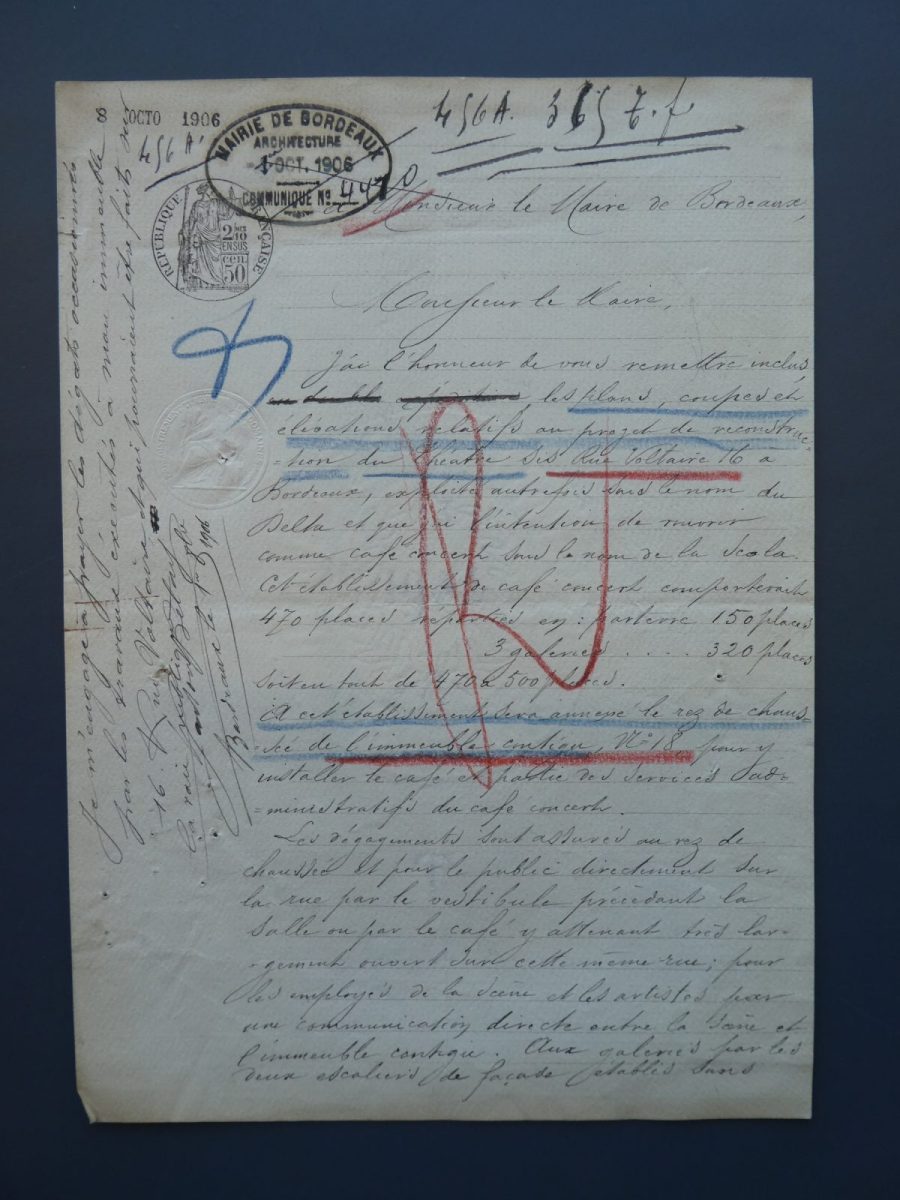 8 OCTO 1906
456 A.
456 A. 3657. f.
MAIRIE DE BORDEAUX
ARCHITECTURE
OCT. 1906
COMMUNIQUÉ No 4470
RÉPUBLIQUE FRANÇAISE
2/10 EN SUS
cen. 50
Monsieur le Maire de Bordeaux,
Monsieur le Maire,
J'ai l'honneur de vous remettre inclus
les plans, coupes et
élévations, relatifs au projet de reconstruc
=tion du théâtre sis Rue Voltaire 16 à
Bordeaux, exploité autrefois sous le nom du
Delta et que j'ai l'intention de rouvrir
comme café concert sous le nom de la Scola.
Cet établissement de café concert comporterait
470 places réparties en : parterre 150 places
3 galeries . . . . 320 places
soit en tout de 470 à 500 places.
A cet établissement sera annexé le rez de chaus-
=sée de l'immeuble contigu, No 18, pour y
installer le café et partie des services d'ad=
=ministratifs du café concert.
Les dégagements sont assurés au rez de
chaussée et pour le public directement sur
la rue par le vestibule précédant la
salle ou par le café y attenant très lar-
-gement ouvert sur cette même rue ; pour
les employés de la scène et les artistes par
une communication directe entre la scène et
l'immeuble contigu. Aux galeries par les
deux escaliers de façade établis sans
Je m'engage à payer les dégâts occasionnés
par les travaux exécutés à mon immeuble
16 rue Voltaire et qui pourraient être faits sur
la voie publique
Bordeaux le 1906